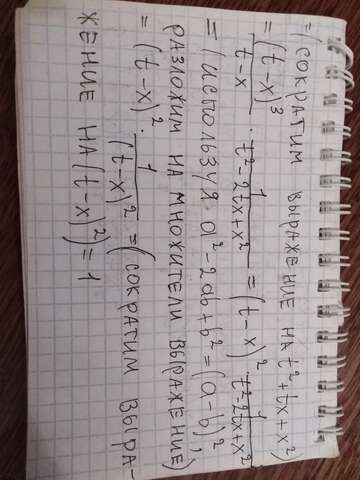 =(СОКРАТИМ ВЫРАЖЕНИЕ НА t²+tx+x²)
= (t-x)³/(t-x) · 1/(t²-2tx+x²) = (t-x)² · 1/(t²-2tx+x²)
=(ИСПОЛЬЗУЯ a²-2ab+b²=(a-b)²,
РАЗЛОЖИМ НА МНОЖИТЕЛИ ВЫРАЖЕНИЕ)
= (t-x)² · 1/(t-x)² = (СОКРАТИМ ВЫРА-
ЖЕНИЕ НА (t-x)²) = 1